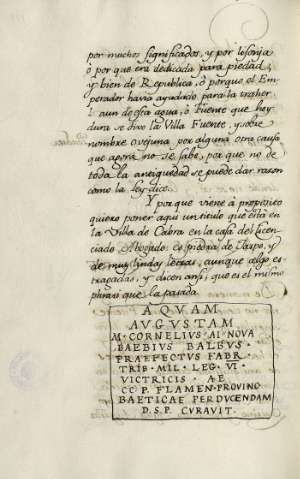 por muchos significados, y por lisonja
ò por que era dedicada para piedad,
y bien de Republica, ò porque el Em-
perador havia ayudado para la traher.
I aun desta agua, ò fuente que hoy
dura se dixo la Villa Fuente, y sobre
nombre ovejuna por alguna otra causa
que agora no se sabe, por que no de
toda la antiguedad se puede dar rason
como la ley dice.
Y porque viene à proposito
quiero poner aqui un titulo que està en
la Villa de Cabra en la casa del licen-
ciado Abogado: es piedra de Iaspo, y
de muy lindas letras, aunque algo es-
tragadas, y dicen ansi, que es el mismo
phrasi que la pasada.
AQVAM
AVGVSTAM
M· CORNELIVS· AI· NOVA
BAEBIVS BALBVS
PRAEFECTVS FABR·
TRIB· MIL· LEG· VI·
VICTRICIS· AE
CC P. FLAMEN· PROVINO
BAETICAE PERDVCENDAM
D.S.P. CVRAVIT.